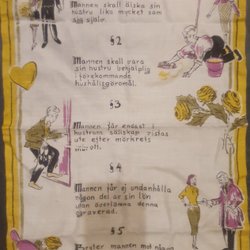 Mannen skall älska sin
hustru lika mycket som
sig själv.
§2
Mannen skall vara
sin hustru behjälplig
i förekommande
hushållsgöromål.
§3
Mannen får endast i
hustruns sällskap vistas
ute efter mörkrets
inbrott.
§4
Mannen får ej undanhålla
någon del av sin lön
utan överlämna denna
oavkortad.
§5
Bryter mannen mot någon